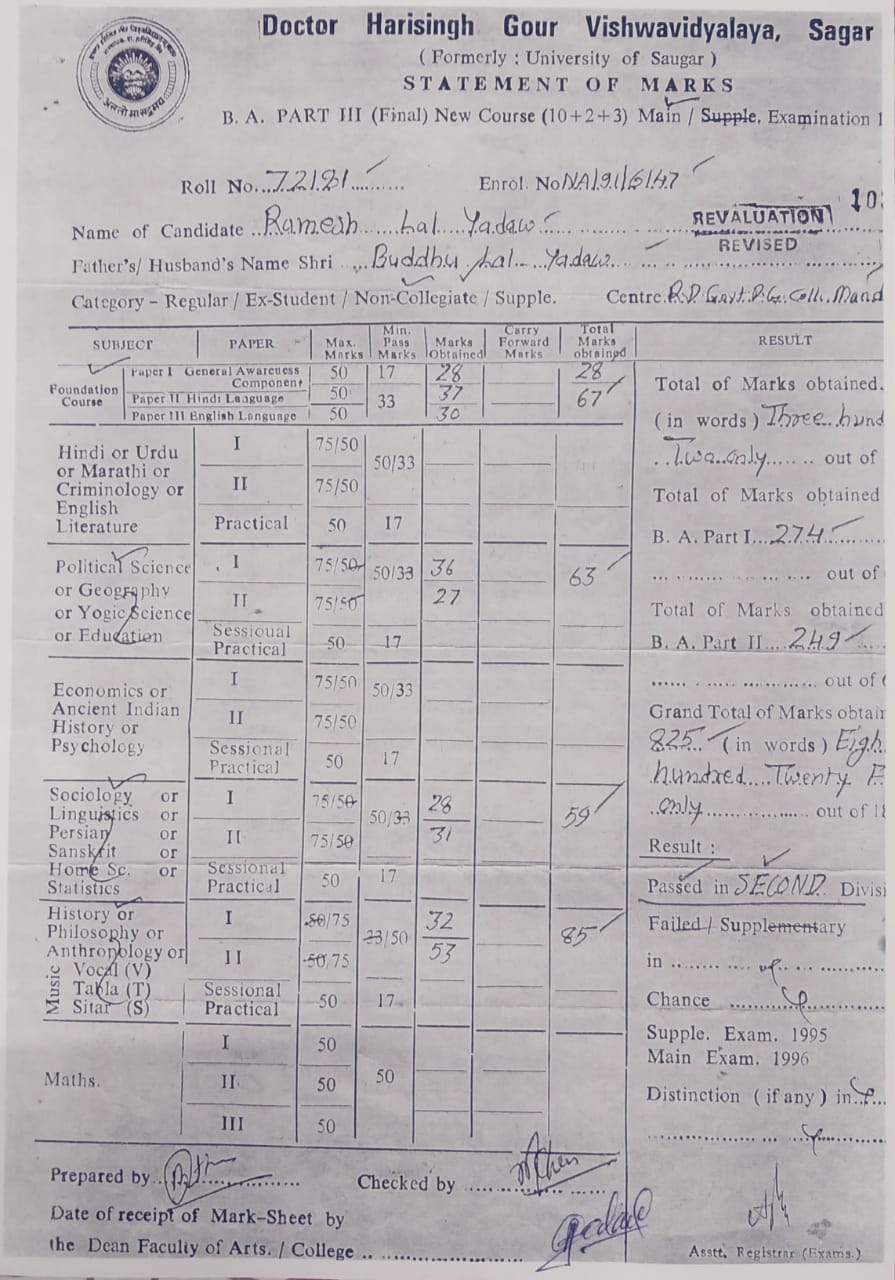 Doctor Harisingh Gour Vishwavidyalaya, Sagar
( Formerly : University of Saugar )
STATEMENT OF MARKS
B. A. PART III (Final) New Course (10+2+3) Main / Supple. Examination 1
Roll No...72181..........
Enrol. No NA/91/6147
Name of Candidate ..Ramesh.....Lal....Yadaw
REVALUATION
REVISED
10
Father's/ Husband's Name Shri ....Buddhu Lal...Yadaw...
Category – Regular / Ex-Student / Non-Collegiate / Supple.
Centre.R.D. Govt. P.G. Coll. Mand
SUBJECT PAPER Max. Marks Min. Pass Marks Marks Obtained Carry Forward Marks Total Marks obtained RESULT
Foundation Course
Paper I General Awareness Component 50 17 28 28
Paper II Hindi Language 50 33 37 67
Paper III English Language 50 30
Hindi or Urdu
or Marathi or
Criminology or
English
Literature
I 75/50 50/33
II 75/50
Practical 50 17
Political Science
or Geography
or Yogic Science
or Education
I 75/50 50/33 36 63
II 75/50 27
Sessioual
Practical 50 17
Economics or
Ancient Indian
History or
Psychology
I 75/50 50/33
II 75/50
Sessional
Practical 50 17
Sociology or
Linguistics or
Persian or
Sanskrit or
Home Sc. or
Statistics
I 75/50 50/33 28 59
II 75/50 31
Sessional
Practical 50 17
History or
Philosophy or
Anthropology or
Music
Vocal (V)
Tabla (T)
Sitar (S)
I 50/75 23/50 32 85
II 50/75 53
Sessional
Practical 50 17
Maths.
I 50
II 50 50
III 50
Total of Marks obtained.
( in words ) Three hund
..Two only....... out of
Total of Marks obtained
B. A. Part I...274
................ out of
Total of Marks obtained
B. A. Part II....249
................ out of
Grand Total of Marks obtain
825 (in words) Eigh
hundred....Twenty F
only.................. out of 18
Result :
Passed in SECOND Divisi
Failed / Supplementary
in ..................
Chance ..............
Supple. Exam. 1995
Main Exam. 1996
Distinction ( if any ) in
Prepared by ..................
Checked by ..................
Date of receipt of Mark-Sheet by
the Dean Faculty of Arts. / College .. ..................
Asstt. Registrar (Exams.)